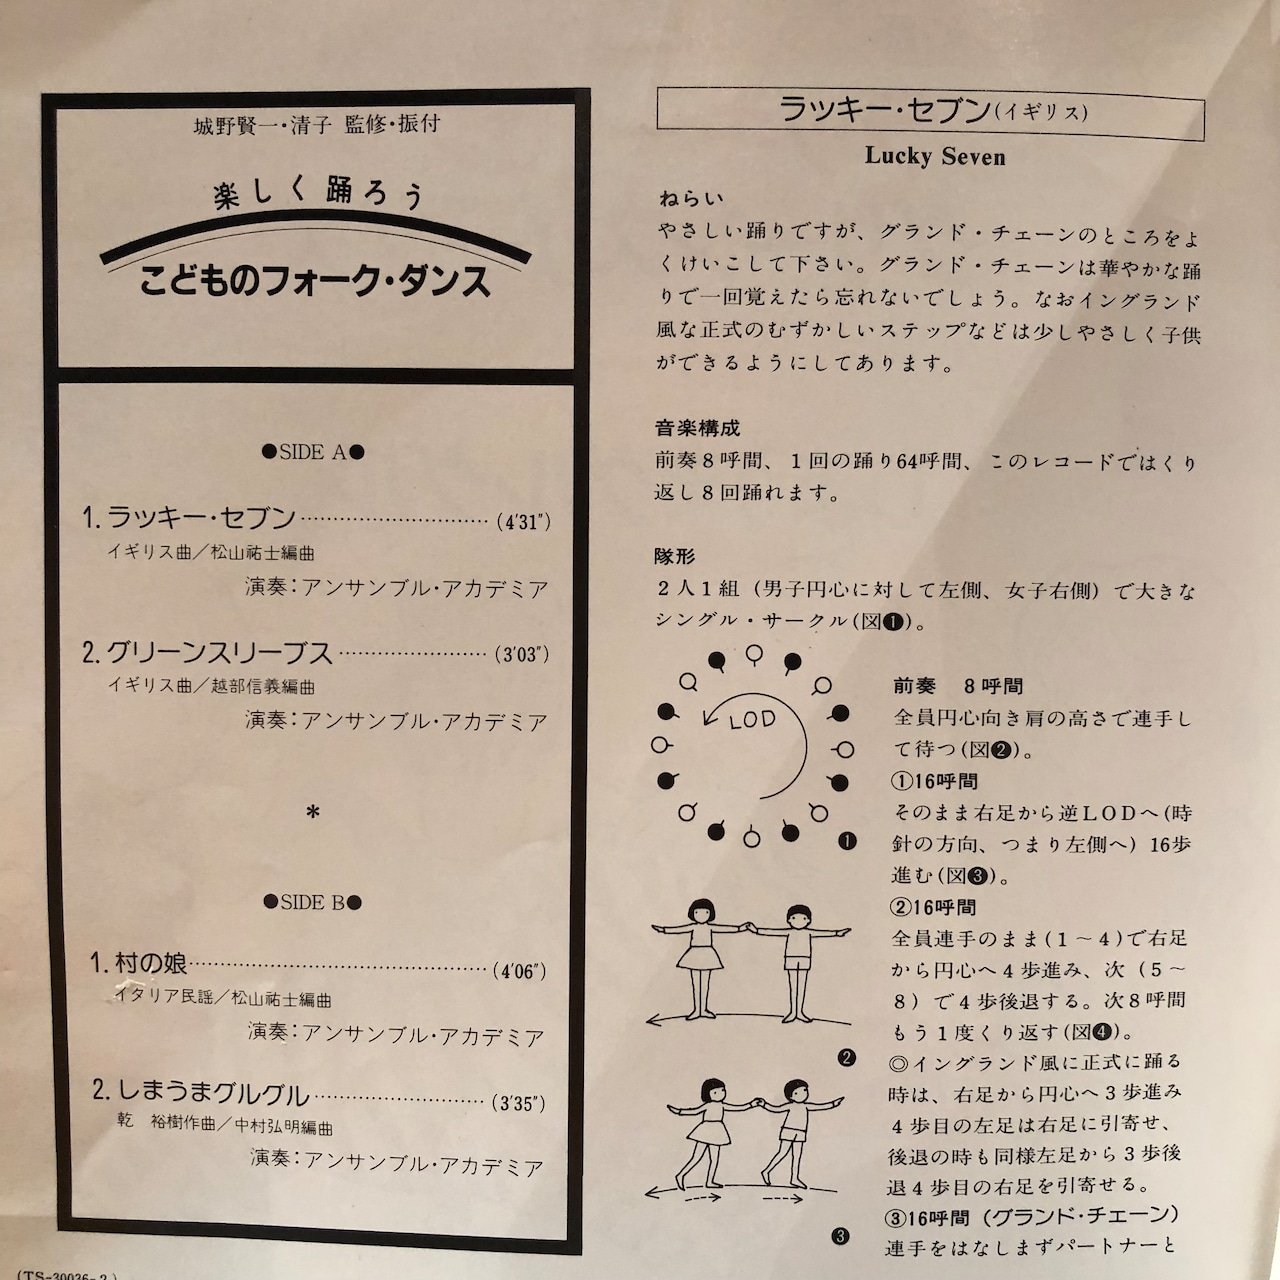 城野賢一・清子 監修・振付
楽しく踊ろう
こどものフォーク・ダンス
●SIDE A●
1. ラッキー・セブン……………………………(4′31″)
イギリス曲／松山祐士編曲
演奏：アンサンブル・アカデミア
2. グリーンスリーブス……………………(3′03″)
イギリス曲／越部信義編曲
演奏：アンサンブル・アカデミア
*
●SIDE B●
1. 村の娘………………………………………(4′06″)
イタリア民謡／松山祐士編曲
演奏：アンサンブル・アカデミア
2. しまうまグルグル………………………(3′35″)
乾　裕樹作曲／中村弘明編曲
演奏：アンサンブル・アカデミア
(TS-30036-2)
ラッキー・セブン(イギリス)
Lucky Seven
ねらい
やさしい踊りですが、グランド・チェーンのところをよ
くけいこして下さい。グランド・チェーンは華やかな踊
りで一回覚えたら忘れないでしょう。なおイングランド
風な正式のむずかしいステップなどは少しやさしく子供
ができるようにしてあります。
音楽構成
前奏８呼間、１回の踊り64呼間、このレコードではくり
返し８回踊れます。
隊形
２人１組（男子円心に対して左側、女子右側）で大きな
シングル・サークル(図❶)。
LOD
❶
❷
❸
前奏　８呼間
全員円心向き肩の高さで連手し
て待つ(図❷)。
①16呼間
そのまま右足から逆ＬＯＤへ(時
針の方向、つまり左側へ）16歩
進む(図❸)。
②16呼間
全員連手のまま(１～４)で右足
から円心へ４歩進み、次（５～
８）で４歩後退する。次８呼間
もう１度くり返す(図❹)。
◎イングランド風に正式に踊る
時は、右足から円心へ３歩進み
４歩目の左足は右足に引寄せ、
後退の時も同様左足から３歩後
退４歩目の右足を引寄せる。
③16呼間（グランド・チェーン）
連手をはなしまずパートナーと